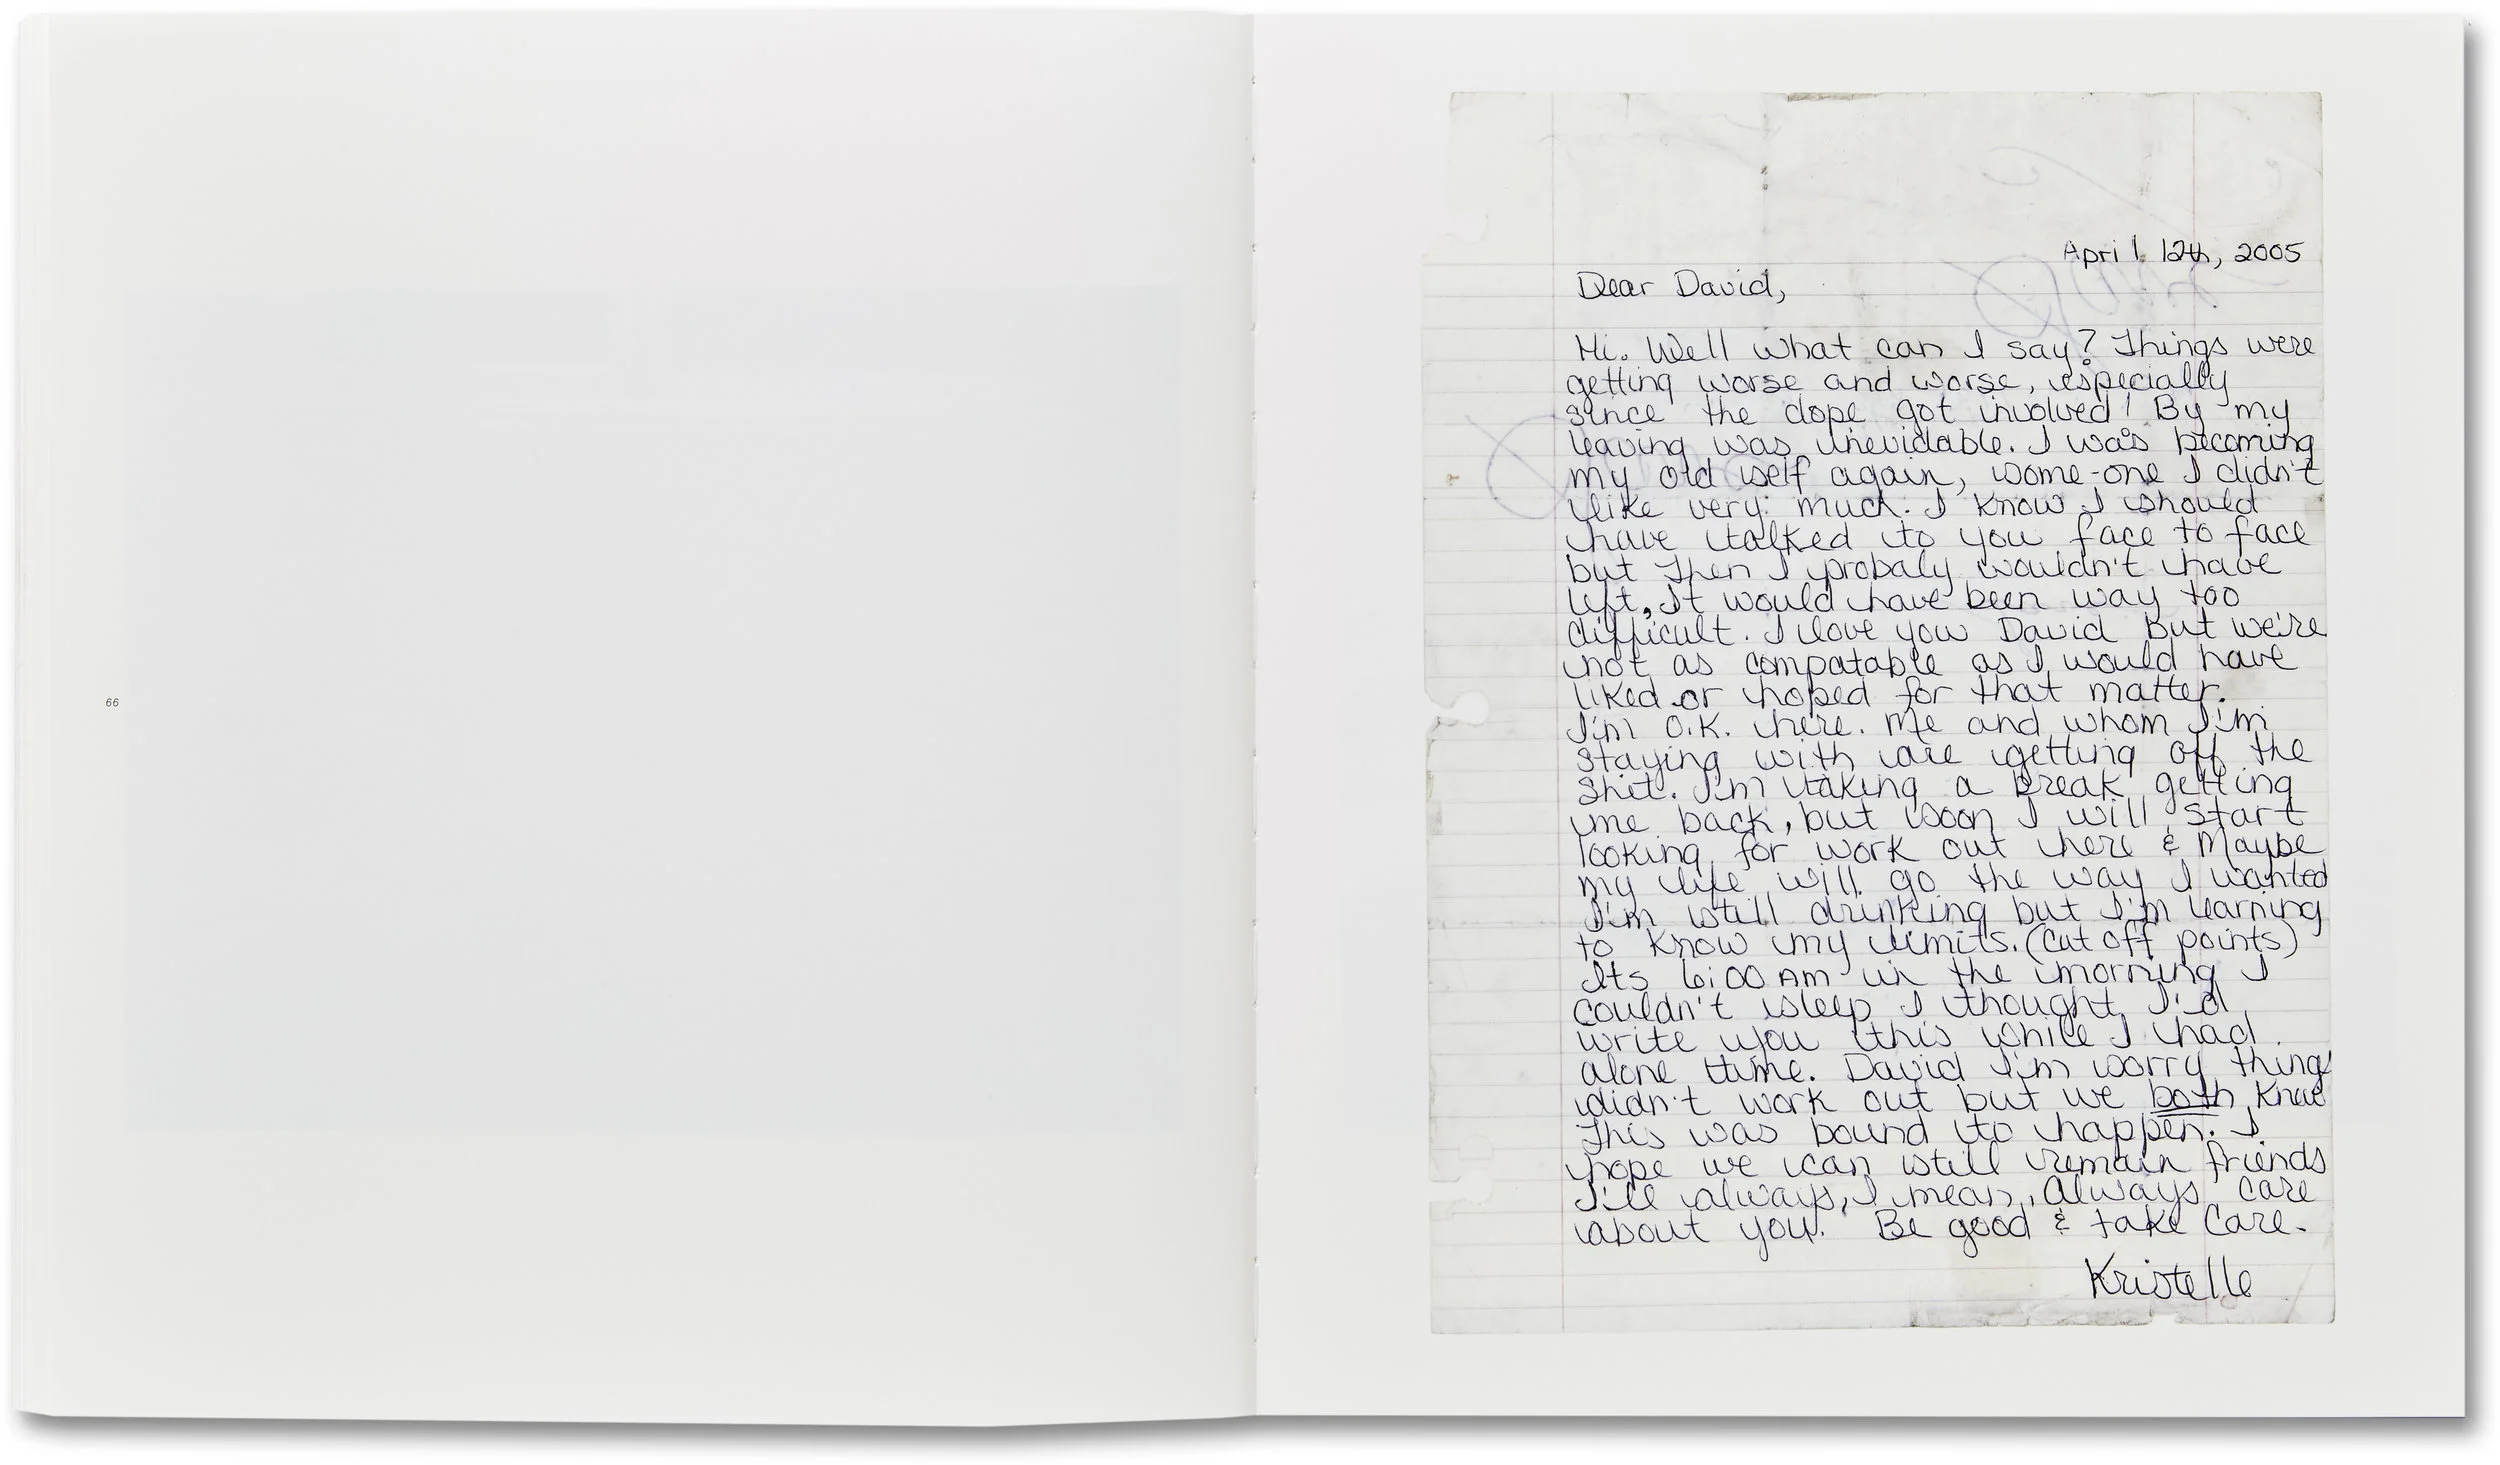 66
April 12th, 2005
Dear David,
Hi. Well what can I say? Things were
getting worse and worse, especially
since the dope got involved! By my
leaving was unevidable. I was becoming
my old self again, some-one I didn't
like very much. I know I should
have talked to you face to face
but then I probaly wouldn't have
left, It would have been way too
difficult. I love you David but we're
not as compatable as I would have
liked or hoped for that matter.
I'm O.K. here. Me and whom I'm
staying with are getting off the
shit. I'm taking a break getting
me back, but soon I will start
looking for work out here & Maybe
my life will go the way I wanted
I'm still drinking but I'm learning
to know my limits. (Cut off points)
Its 6:00 AM in the morning I
couldn't sleep I thought I'd
write you this while I had
alone time. David I'm sorry things
didn't work out but we both knew
This was bound to happen. I
hope we can still remain friends
I'll always, I mean, Always care
about you. Be good & take care.
Kristelle